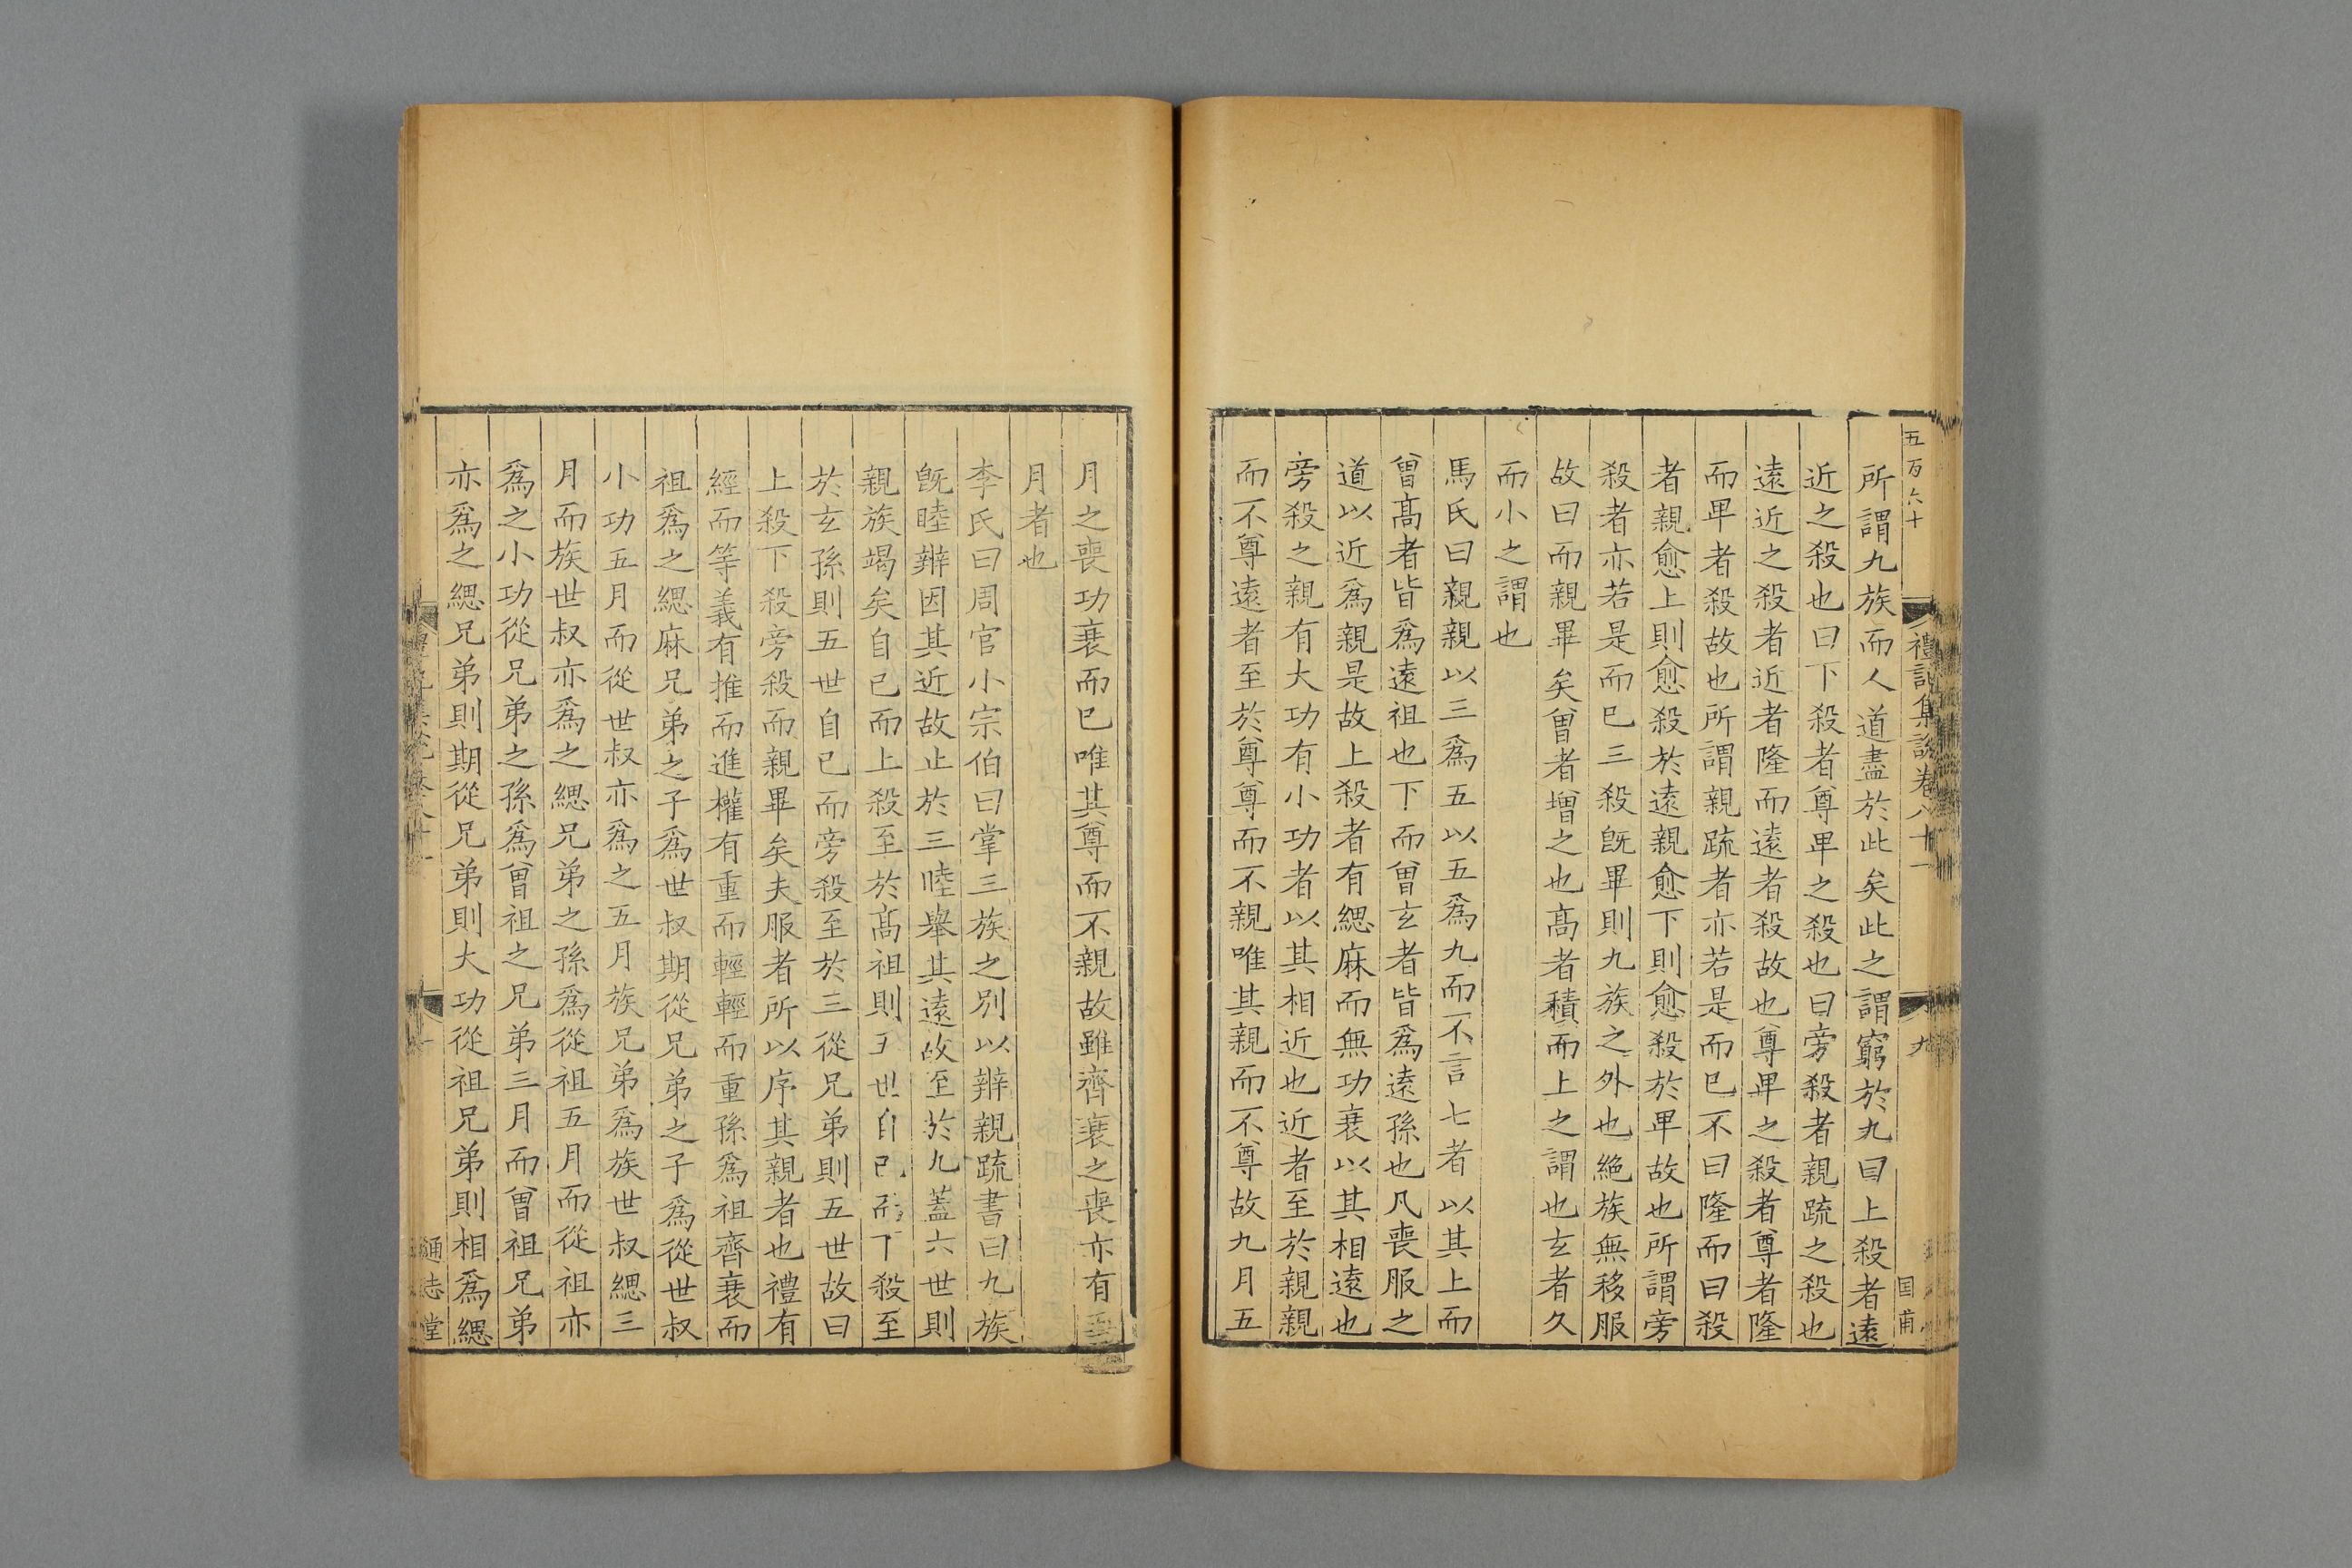 五百六十
禮記集說卷八十一
九
国甫
所謂九族而人道盡於此矣此之謂窮於九曰上殺者遠
近之殺也曰下殺者尊卑之殺也曰旁殺者親疏之殺也
遠近之殺者近者隆而遠者殺故也尊卑之殺者尊者隆
而卑者殺故也所謂親疏者亦若是而已不曰隆而曰殺
者親愈上則愈殺於遠親愈下則愈殺於卑故也所謂旁
殺者亦若是而已三殺旣畢則九族之外也絶族無移服
故曰而親畢矣曾者增之也髙者積而上之謂也玄者久
而小之謂也
馬氏曰親親以三爲五以五爲九而不言七者以其上而
曾髙者皆爲遠祖也下而曾玄者皆爲遠孫也凡喪服之
道以近爲親是故上殺者有緦麻而無功衰以其相遠也
旁殺之親有大功有小功者以其相近也近者至於親親
而不尊遠者至於尊尊而不親唯其親而不尊故九月五
月之喪功衰而已唯其尊而不親故雖齊衰之喪亦有
月者也
李氏曰周官小宗伯曰掌三族之別以辨親疏書曰九族
旣睦辨因其近故止於三睦舉其遠故至於九蓋六世則
親族竭矣自已而上殺至於髙祖則五世自已而下殺至
於玄孫則五世自已而旁殺至於三從兄弟則五世故曰
上殺下殺旁殺而親畢矣夫服者所以序其親者也禮有
經而等義有推而進權有重而輕輕而重孫爲祖齊衰而
祖爲之緦麻兄弟之子爲世叔期從兄弟之子爲從世叔
小功五月而從世叔亦爲之五月族兄弟爲族世叔緦三
月而族世叔亦爲之緦兄弟之孫爲從祖五月而從祖亦
爲之小功從兄弟之孫爲曾祖之兄弟三月而曾祖兄弟
亦爲之緦兄弟則期從兄弟則大功從祖兄弟則相爲緦
通志堂